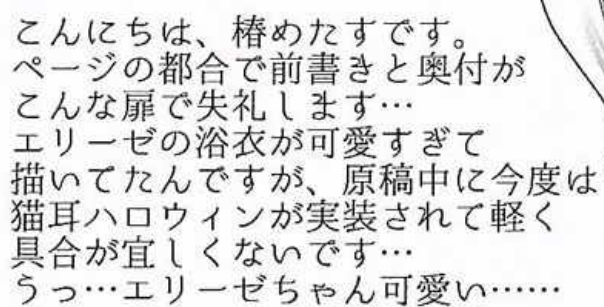 こんにちは、椿めたすです。
ページの都合で前書きと奥付が
こんな扉で失礼します…
エリーゼの浴衣が可愛すぎて
描いてたんですが、原稿中に今度は
猫耳ハロウィンが実装されて軽く
具合が宜しくないです…
うっ…エリーゼちゃん可愛い……